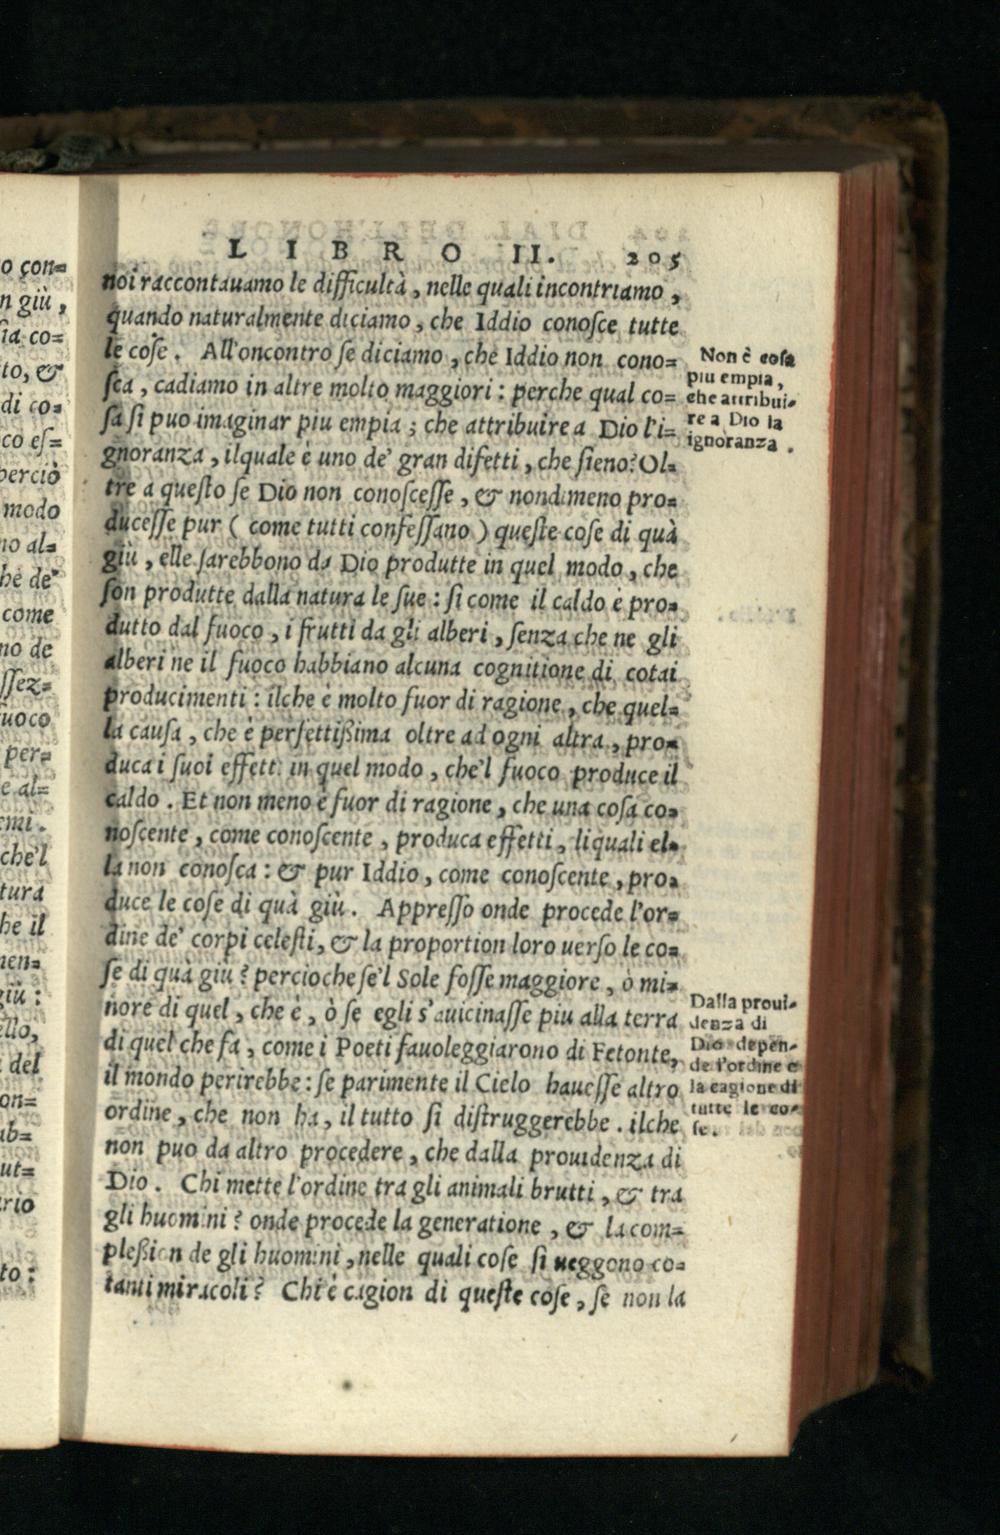 LIBRO II. 205
noi raccontauamo le difficultà, nelle quali incontriamo,
quando naturalmente diciamo, che Iddio conoſce tutte
le coſe. All'oncontro ſe diciamo, che Iddio non cono=
ſca, cadiamo in altre molto maggiori: perche qual co=
ſa ſi puo imaginar piu empia; che attribuire a Dio l'i=
gnoranza, ilquale è uno de' gran difetti, che ſieno? Ol=
tre a queſto ſe Dio non conoſceſſe, & nondimeno pro=
duceſſe pur ( come tutti confeſſano ) queſte coſe di quà
giù, elle ſarebbono da Dio produtte in quel modo, che
ſon produtte dalla natura le ſue: ſi come il caldo è pro=
dutto dal fuoco, i frutti da gli alberi, ſenza che ne gli
alberi ne il fuoco habbiano alcuna cognitione di cotai
producimenti: ilche è molto fuor di ragione, che quel=
la cauſa, che è perfettiſsima oltre ad ogni altra, pro=
duca i ſuoi effetti in quel modo, che'l fuoco produce il
caldo. Et non meno è fuor di ragione, che una coſa co=
noſcente, come conoſcente, produca effetti, liquali el=
la non conoſca: & pur Iddio, come conoſcente, pro=
duce le coſe di quà giù. Appreſſo onde procede l'or=
dine de' corpi celeſti, & la proportion loro uerſo le co=
ſe di quà giù? percioche ſe'l Sole foſſe maggiore, ò mi=
nore di quel, che è, ò ſe egli s'auicinaſſe piu alla terra
di quel che fa, come i Poeti fauoleggiarono di Fetonte,
il mondo perirebbe: ſe parimente il Cielo haueſſe altro
ordine, che non ha, il tutto ſi diſtruggerebbe. ilche
non puo da altro procedere, che dalla prouidenza di
Dio. Chi mette l'ordine tra gli animali brutti, & tra
gli huomini? onde procede la generatione, & la com=
pleſsion de gli huomini, nelle quali coſe ſi ueggono co=
tanti miracoli? Chi è cagion di queſte coſe, ſe non la
Non è coſa
piu empia,
che attribui=
re a Dio la
ignoranza.
Dalla proui=
denza di
Dio depen=
de l'ordine e
la cagione di
tutte le co=
ſe.
o con=
n giù,
ſia co=
to, &
di co=
co eſ=
perciò
modo
no al=
he de'
come
no de
ſſez=
uoco
per=
e al=
emi.
che'l
tura
he il
nen=
giù:
ello,
del
on=
ab=
ut=
ario
to: